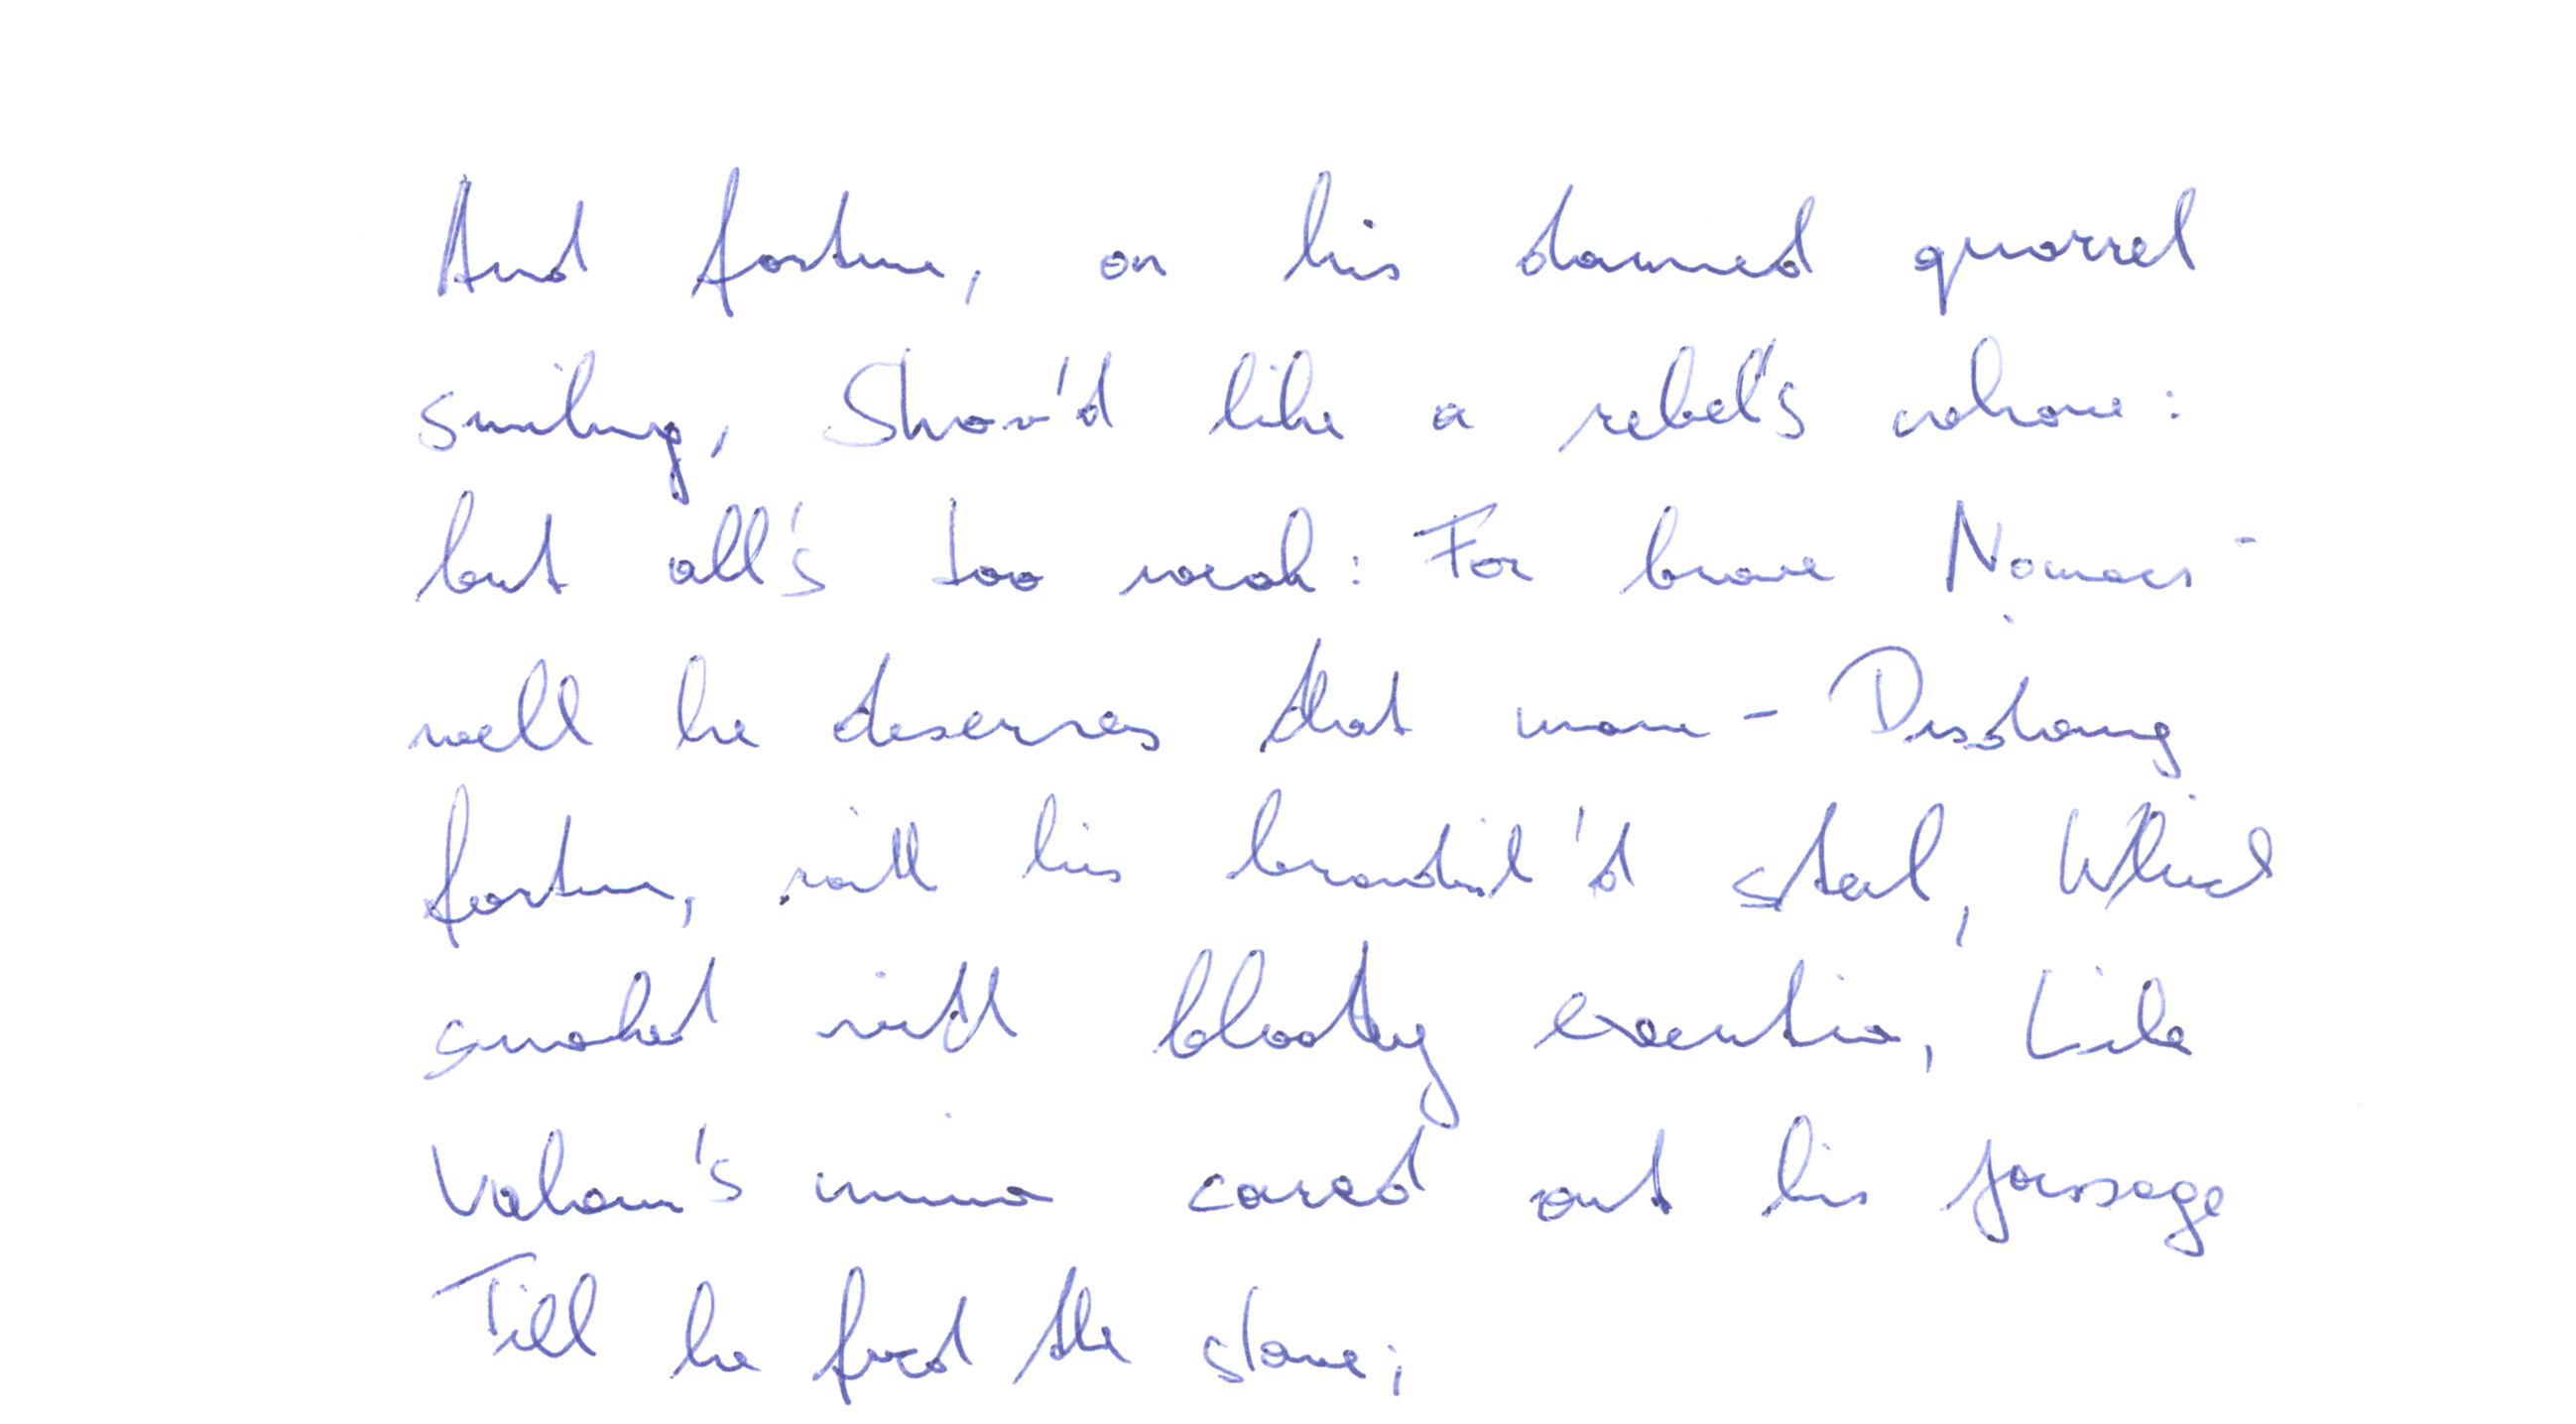 And fortune, on his damned quarrel
smiling, Show'd like a rebel's whore:
but all's too weak: For brave Nomaci -
well he deserves that name - Disdaing
fortune, with his brandish'd steel, Which
smoked with bloody execution, Like
Valour's minion carved out his passage
Till he faced the slave;